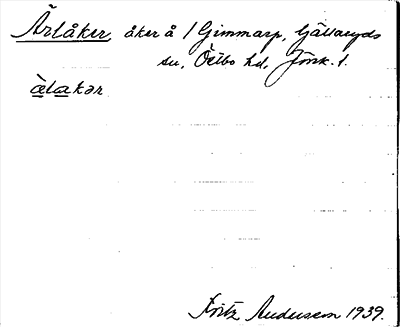 Ärlåker åker å 1 Gimmarp, Gällaryds
sn, Östbo hd, Jönk. l.
àlakər
Fritz Andersson 1939.